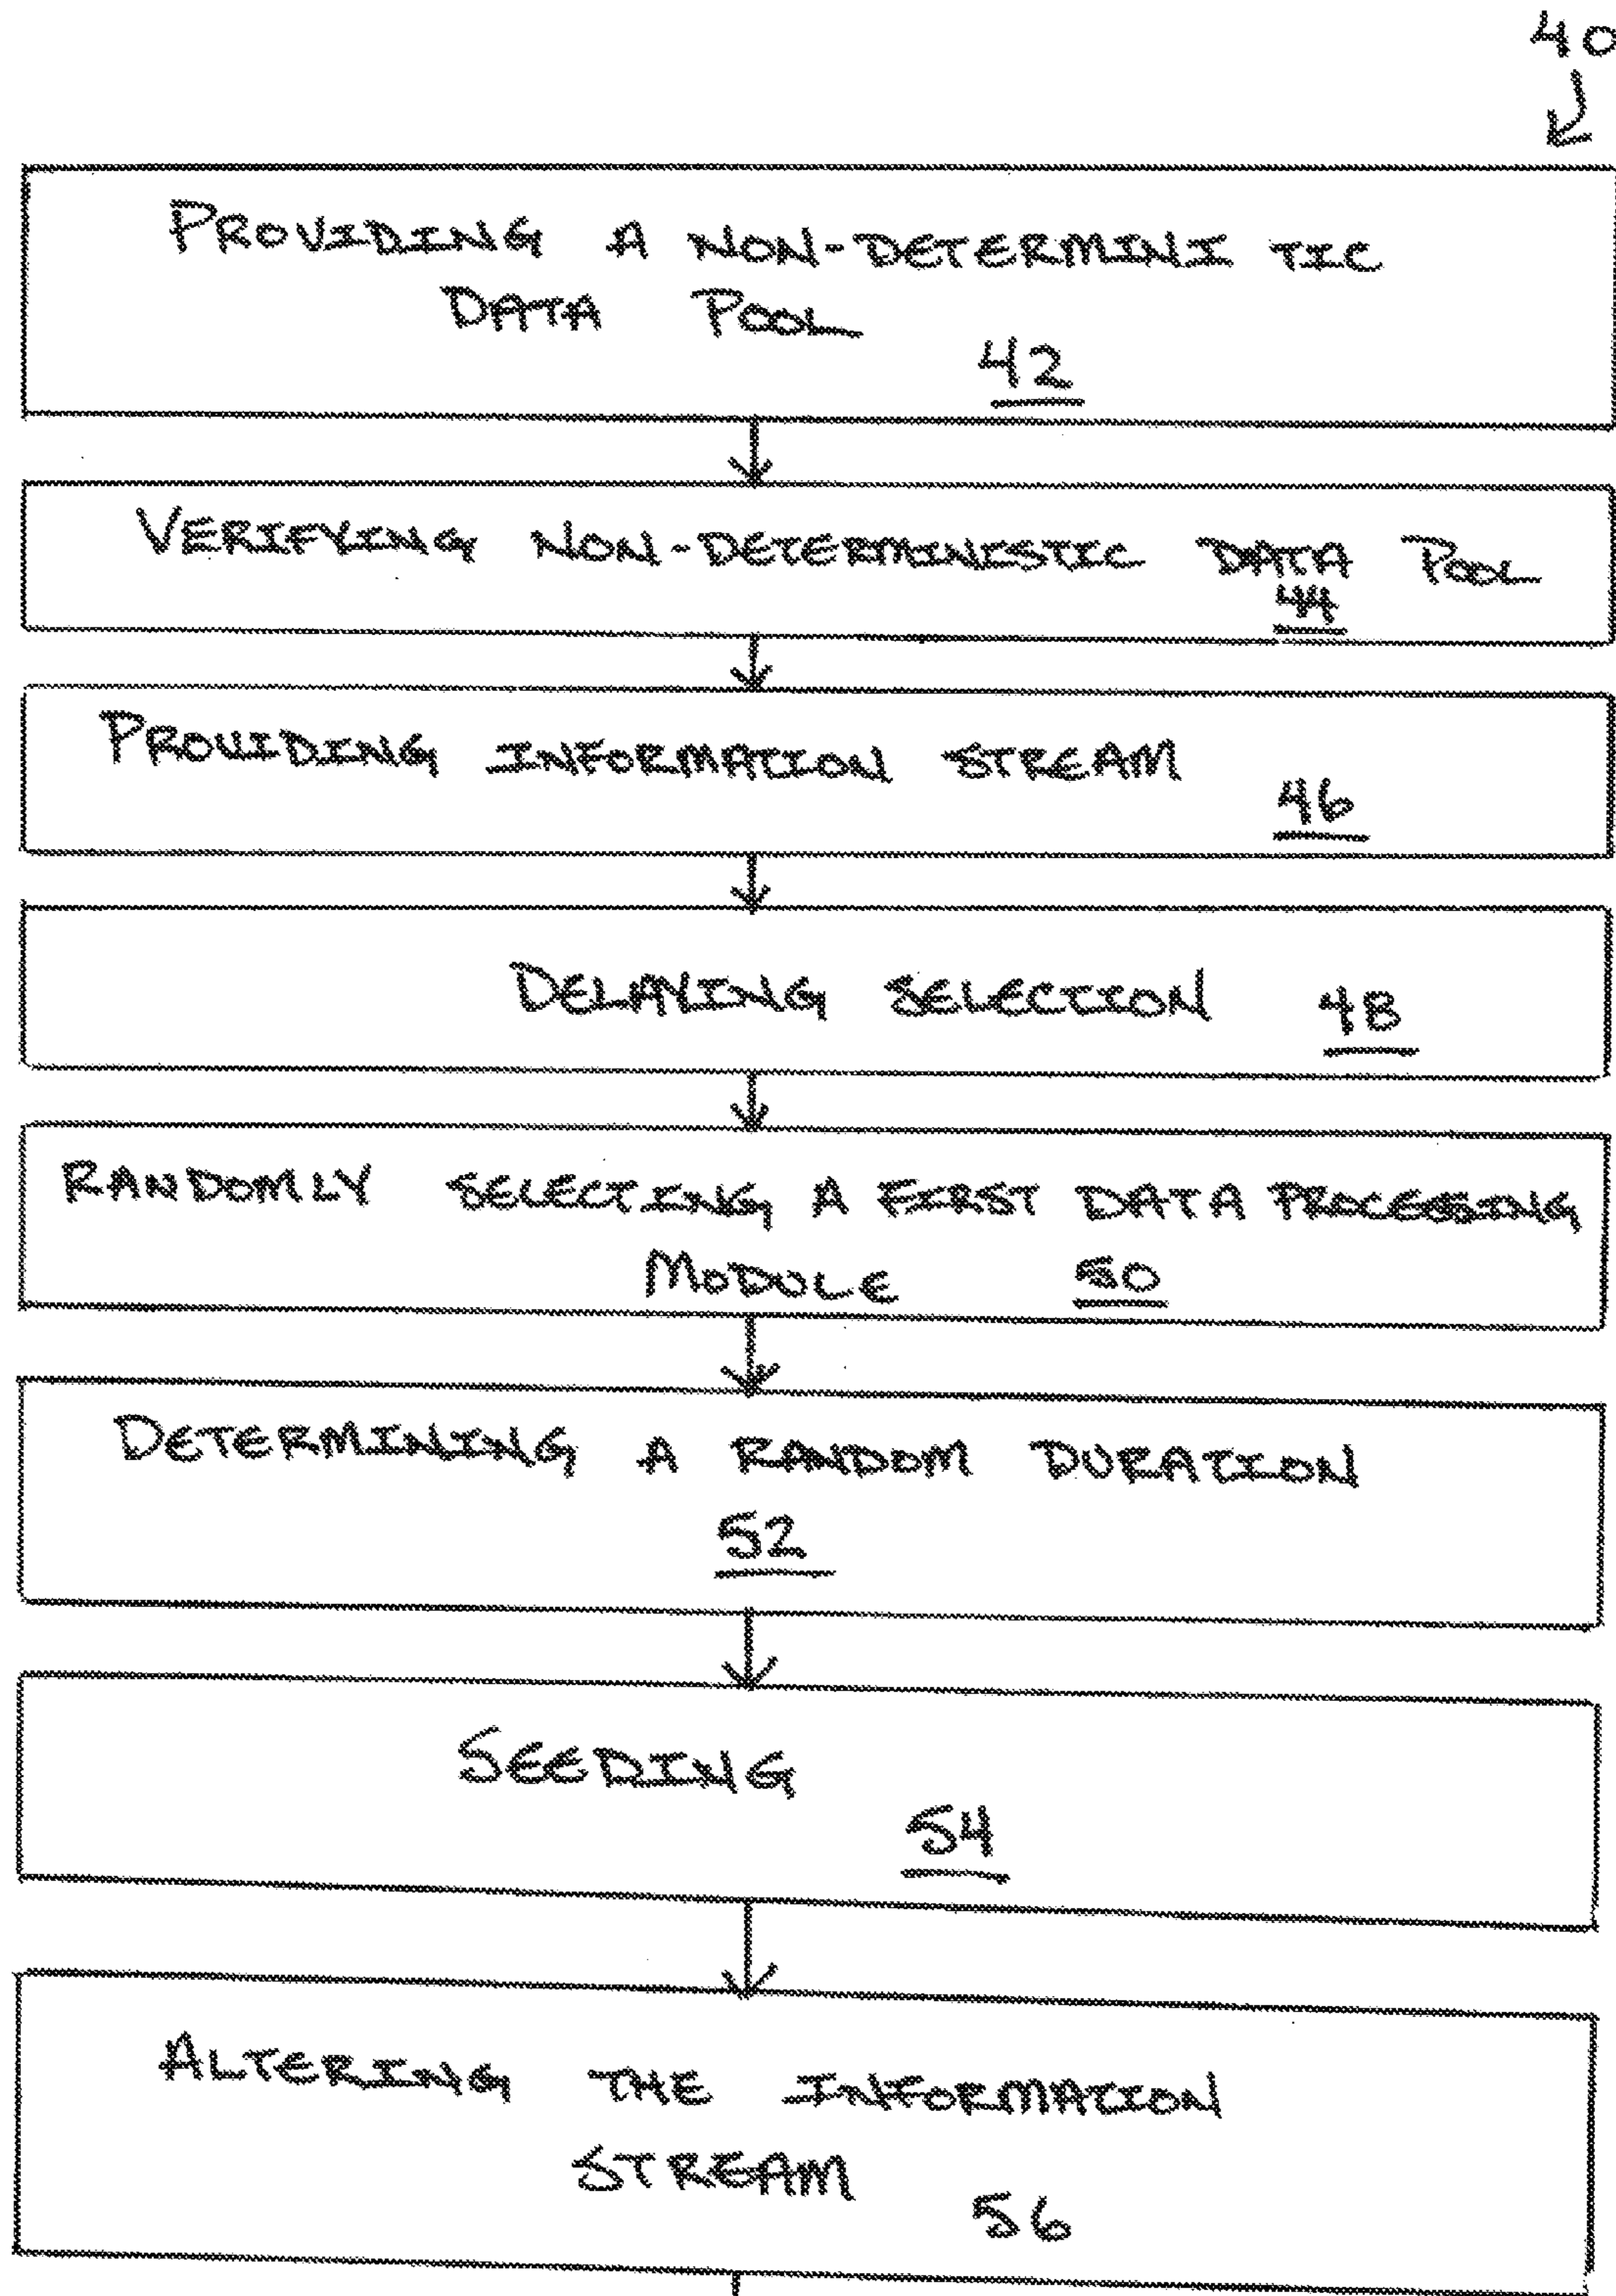 40
PROVIDING A NON-DETERMINI TIC
DATA POOL
42
VERIFYING NON-DETERMINISTIC DATA POOL
44
PROVIDING INFORMATION STREAM
46
DELAYING SELECTION 48
RANDOMLY SELECTING A FIRST DATA PROCESSING
MODULE 50
DETERMINING A RANDOM DURATION
52
SEEDING
54
ALTERING THE INFORMATION
STREAM
56